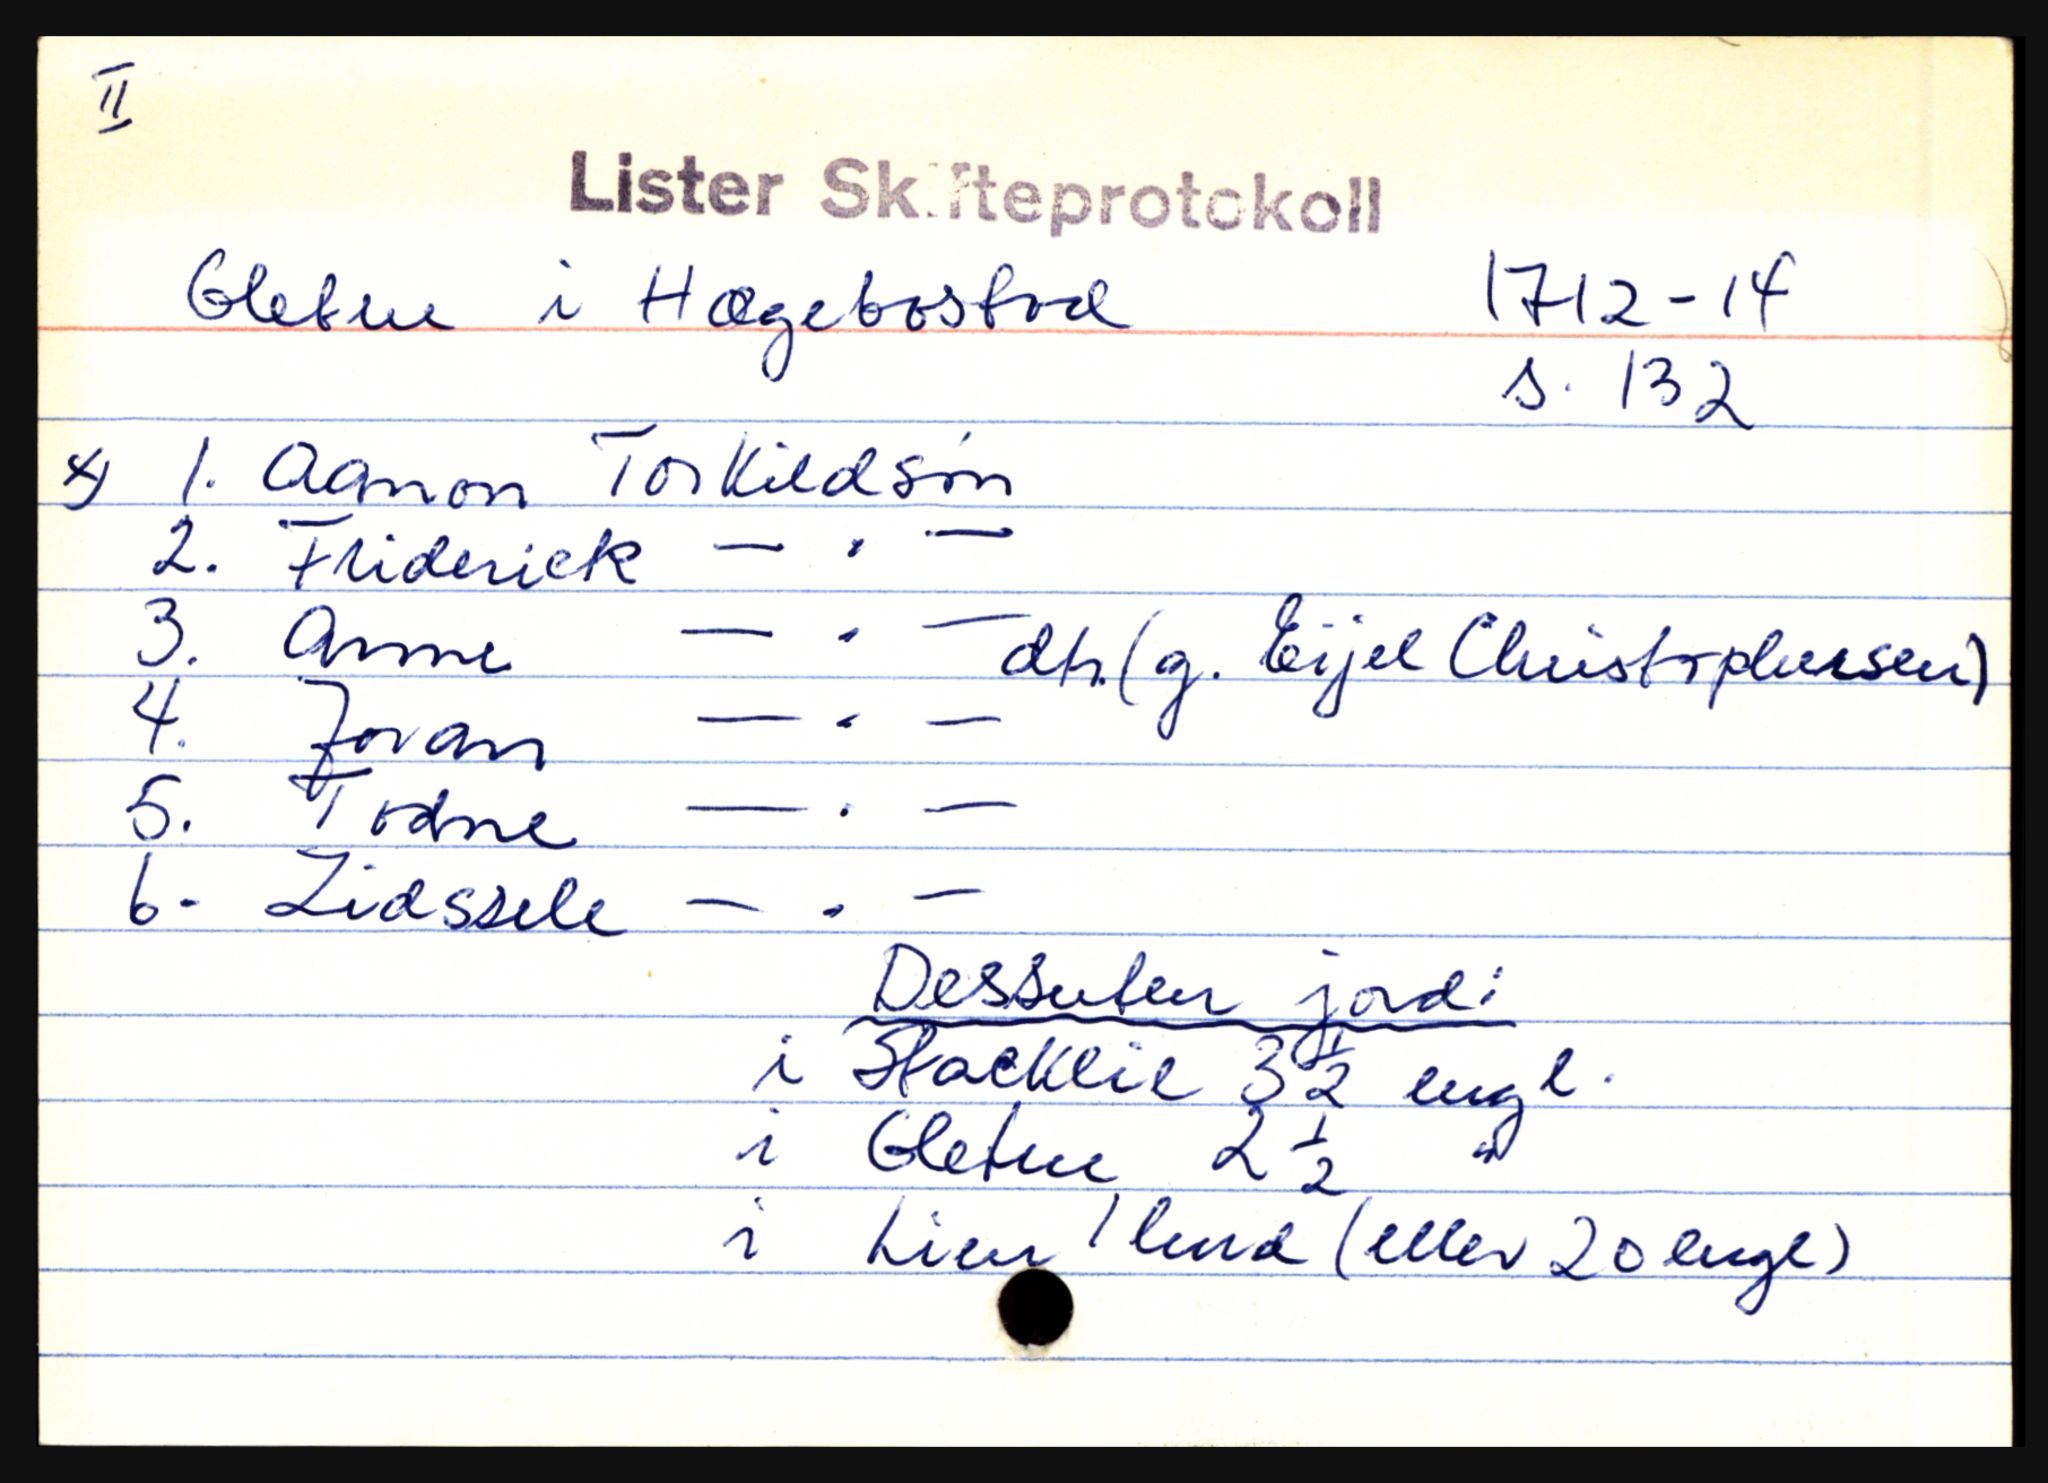 II
Lister Skifteprotokoll
Gletne i Hægebostad 1712-14
s. 132
x) 1. Aanon Torkildsøn
2. Friderick — . —
3. Anne — . — dtr. (g. Eijel Christophersen)
4. Joran — . —
5. Todne — . —
6. Zidssele — . —
Dessuten jord:
i Stacklie 3 1/2 engl.
i Gletne 2 1/2 "
i Lien 1 hud (eller 20 engl)